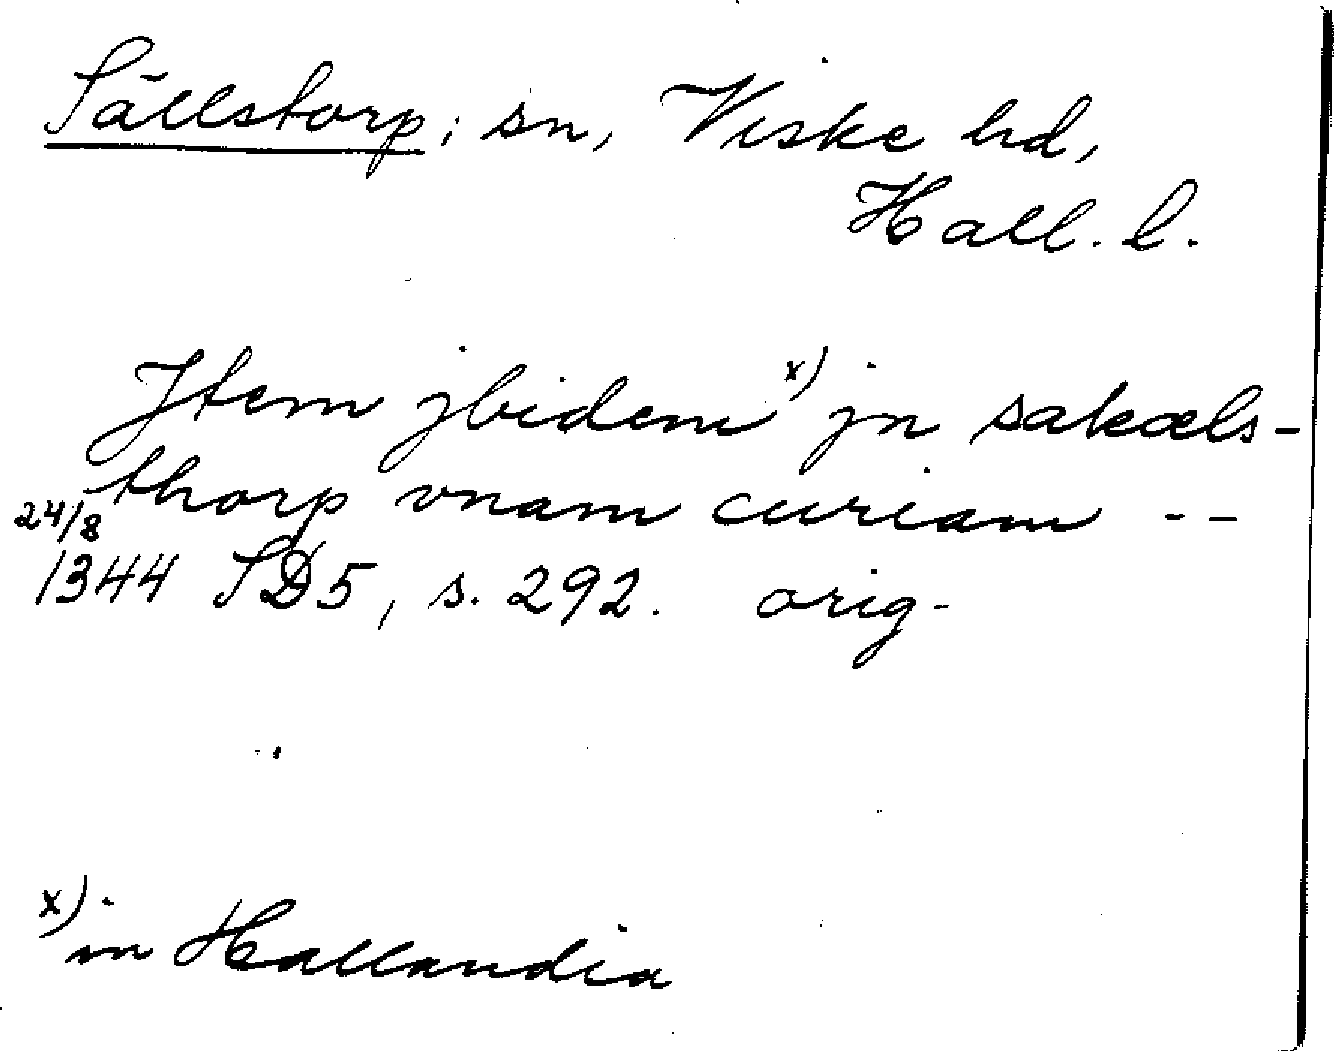 Sällstorp; sn, Viske hd,
Hall. l.
Jtem jbidem x) jn sakæls-
thorp vnam curiam --
24/8
1344 SD5, s. 292. orig.
x) in Hallandia